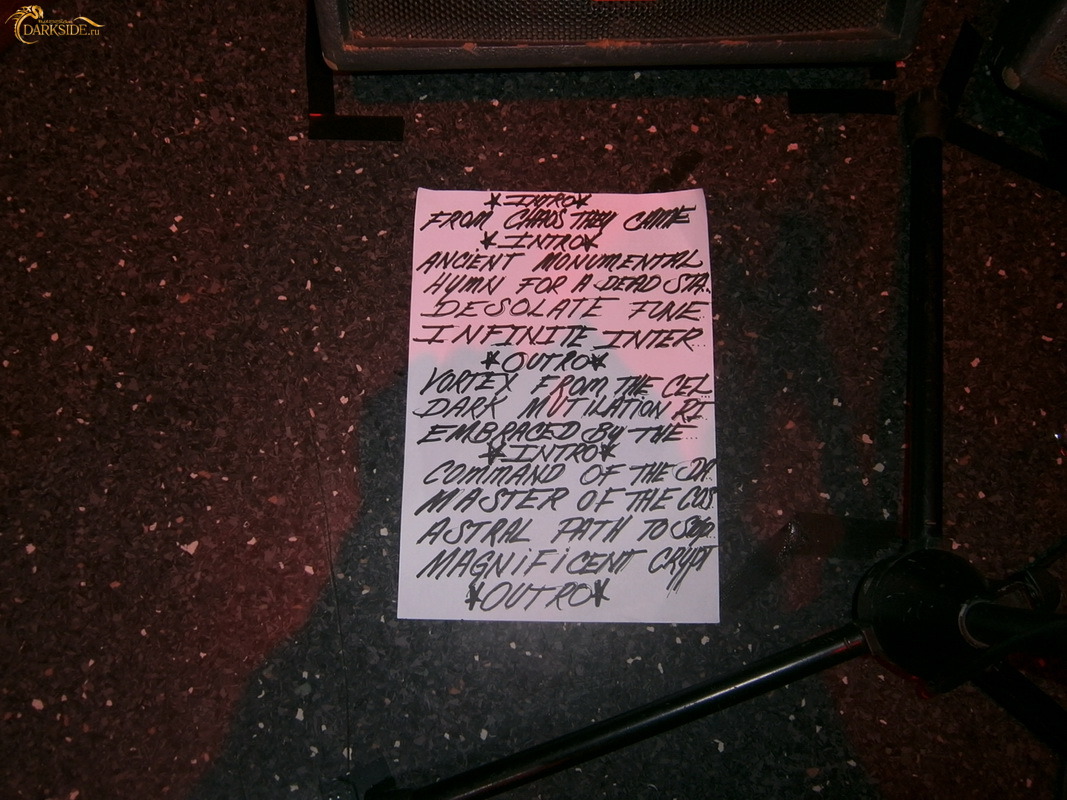 DARKSIDE.ru
*INTRO*
FROM CHAOS THEY CAME
*INTRO*
ANCIENT MONUMENTAL
HYMN FOR A DEAD STA..
DESOLATE FUNE..
INFINITE INTER...
*OUTRO*
VORTEX FROM THE CEL..
DARK MUTILATION RI..
EMBRACED BY THE...
*INTRO*
COMMAND OF THE DA..
MASTER OF THE COS.
ASTRAL PATH TO
MAGNIFICENT CRYPT
*OUTRO*